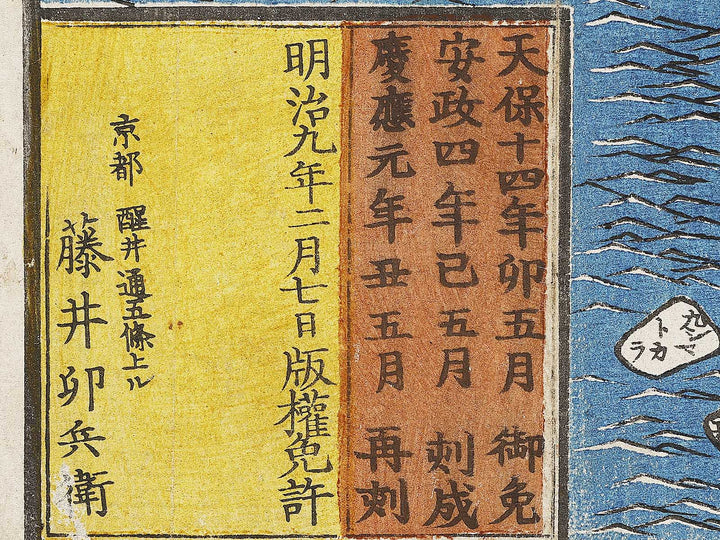 天保十四年卯五月 御免
安政四年巳五月 刻成
慶應元年丑五月 再刻
明治九年二月七日版權免許
京都 醒井通五條上ル
藤井卯兵衛
九シマ
トカラ